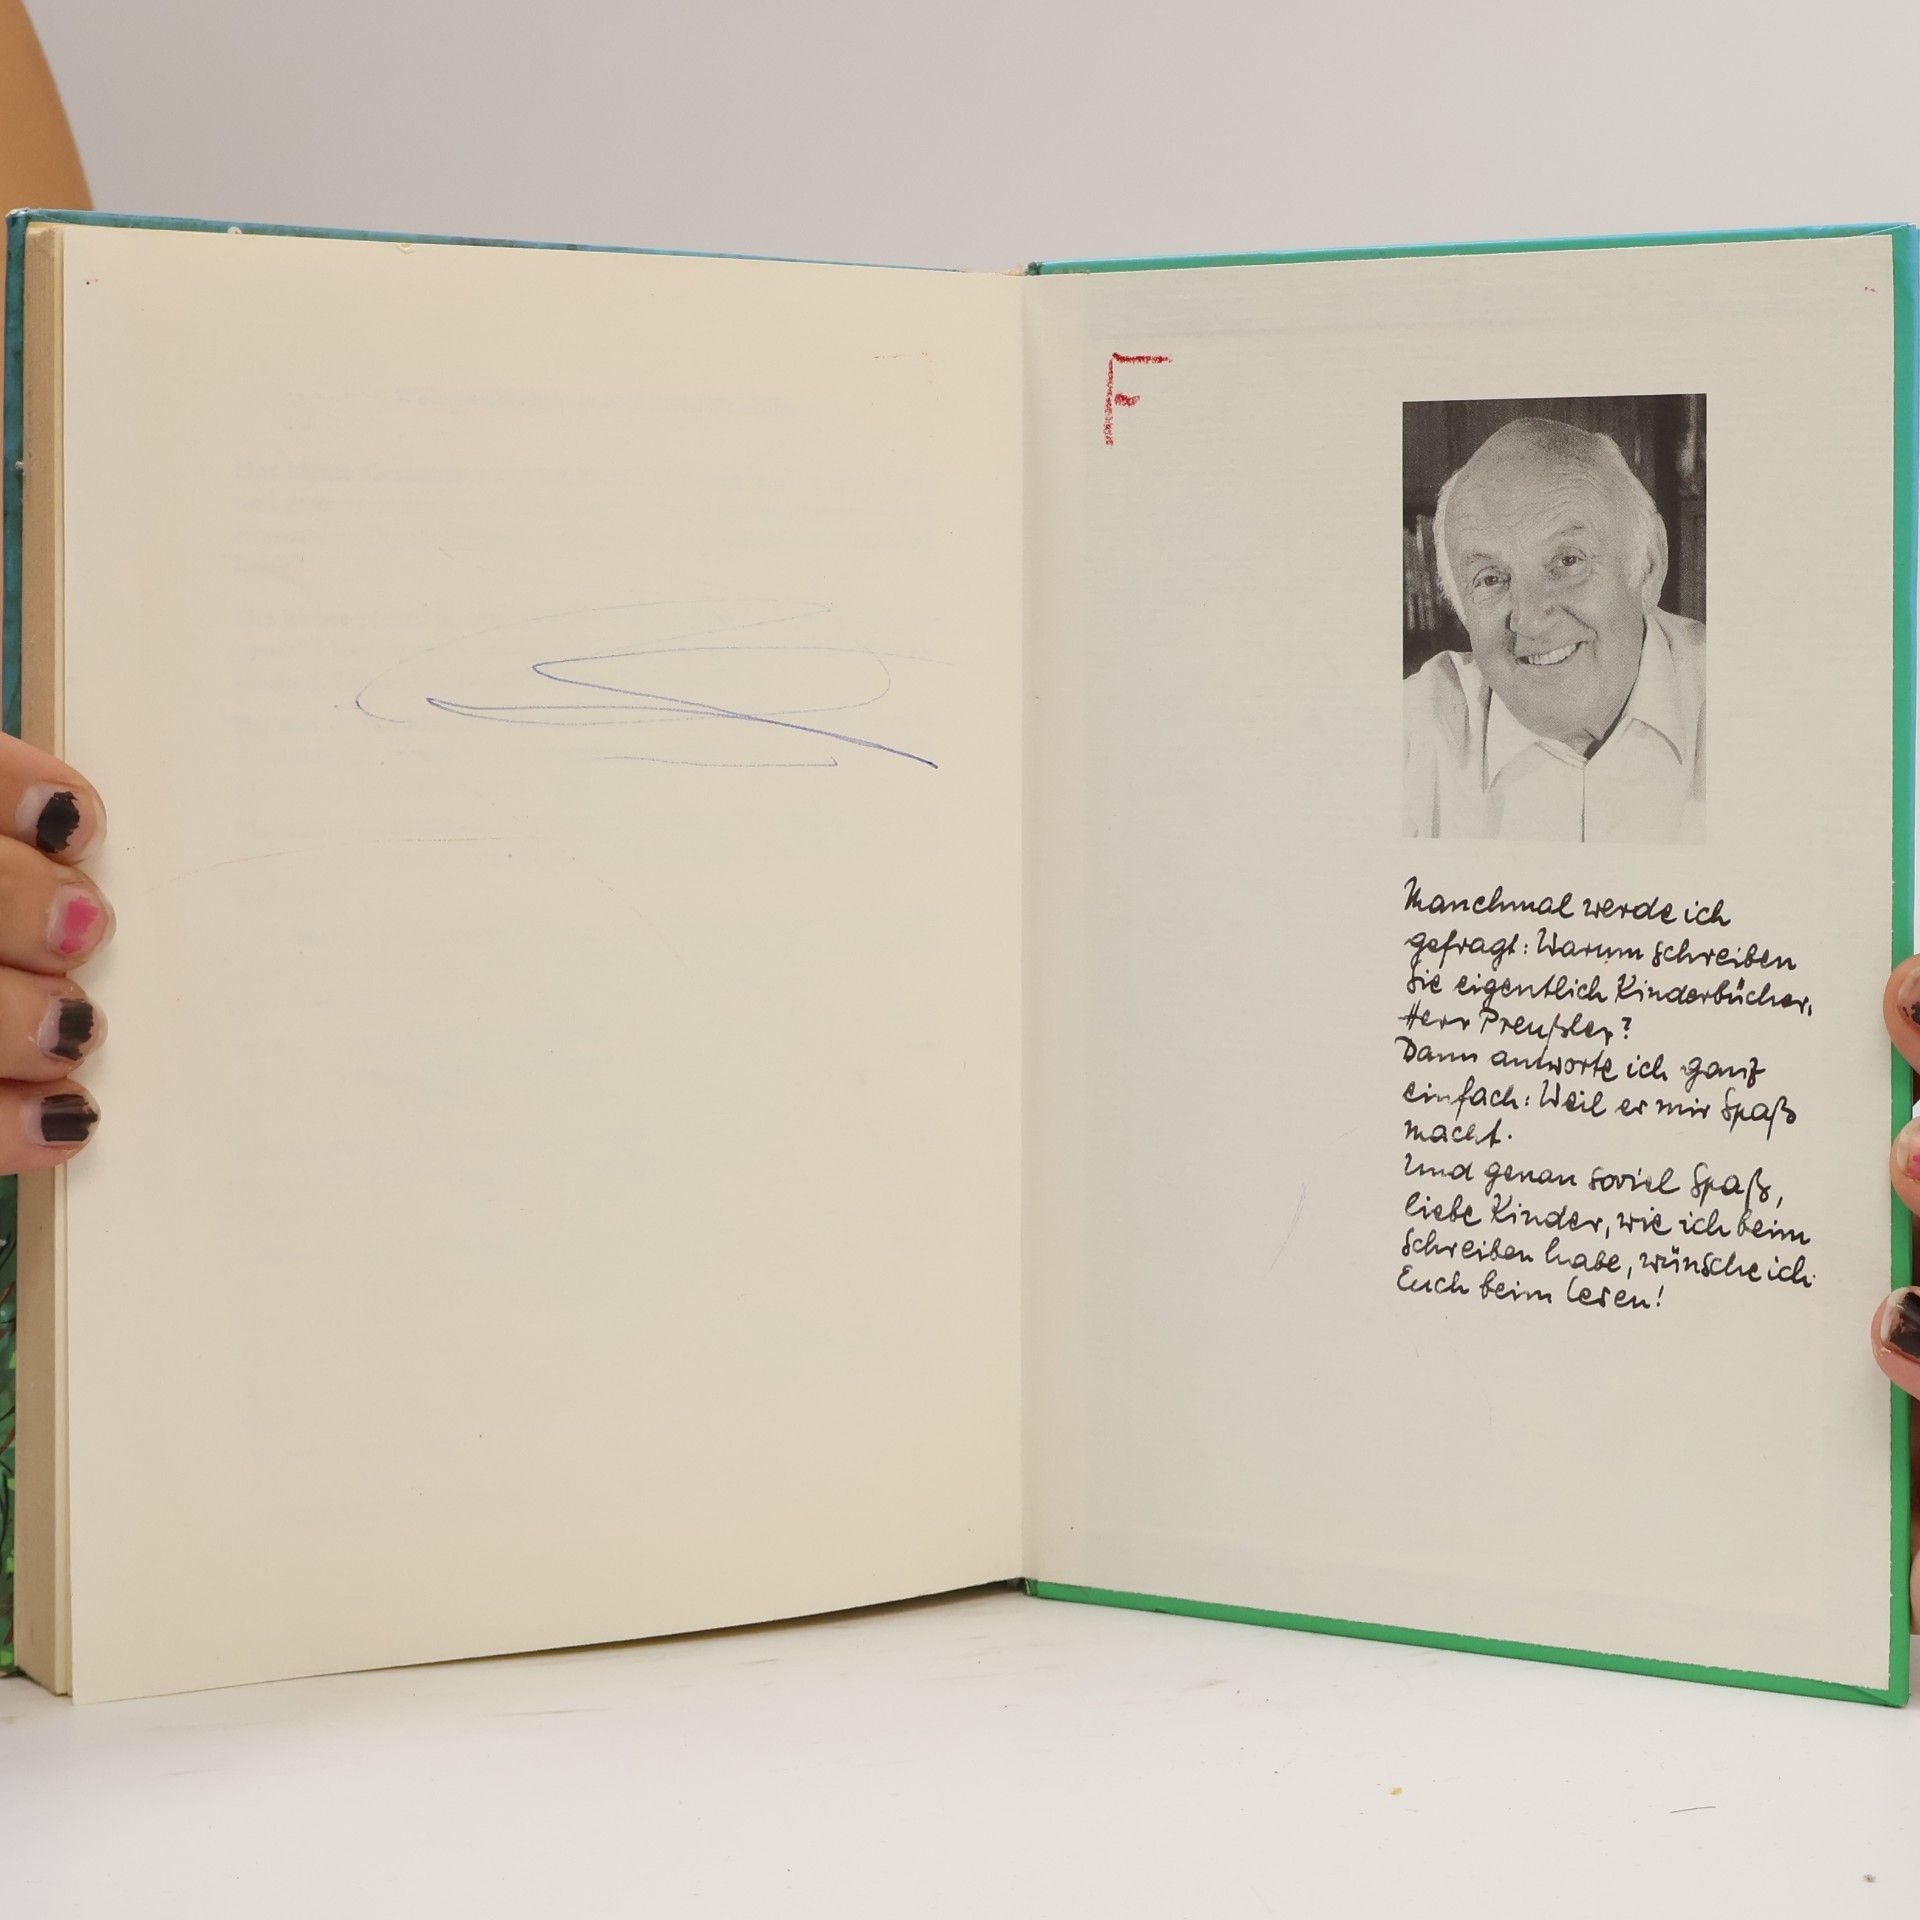 F
Manchmal werde ich
gefragt: Warum schreiben
Sie eigentlich Kinderbücher,
Herr Preußler?
Dann antworte ich ganz
einfach: Weil es mir Spaß
macht.
Und genau soviel Spaß,
liebe Kinder, wie ich beim
Schreiben habe, wünsche ich
Euch beim Lesen!